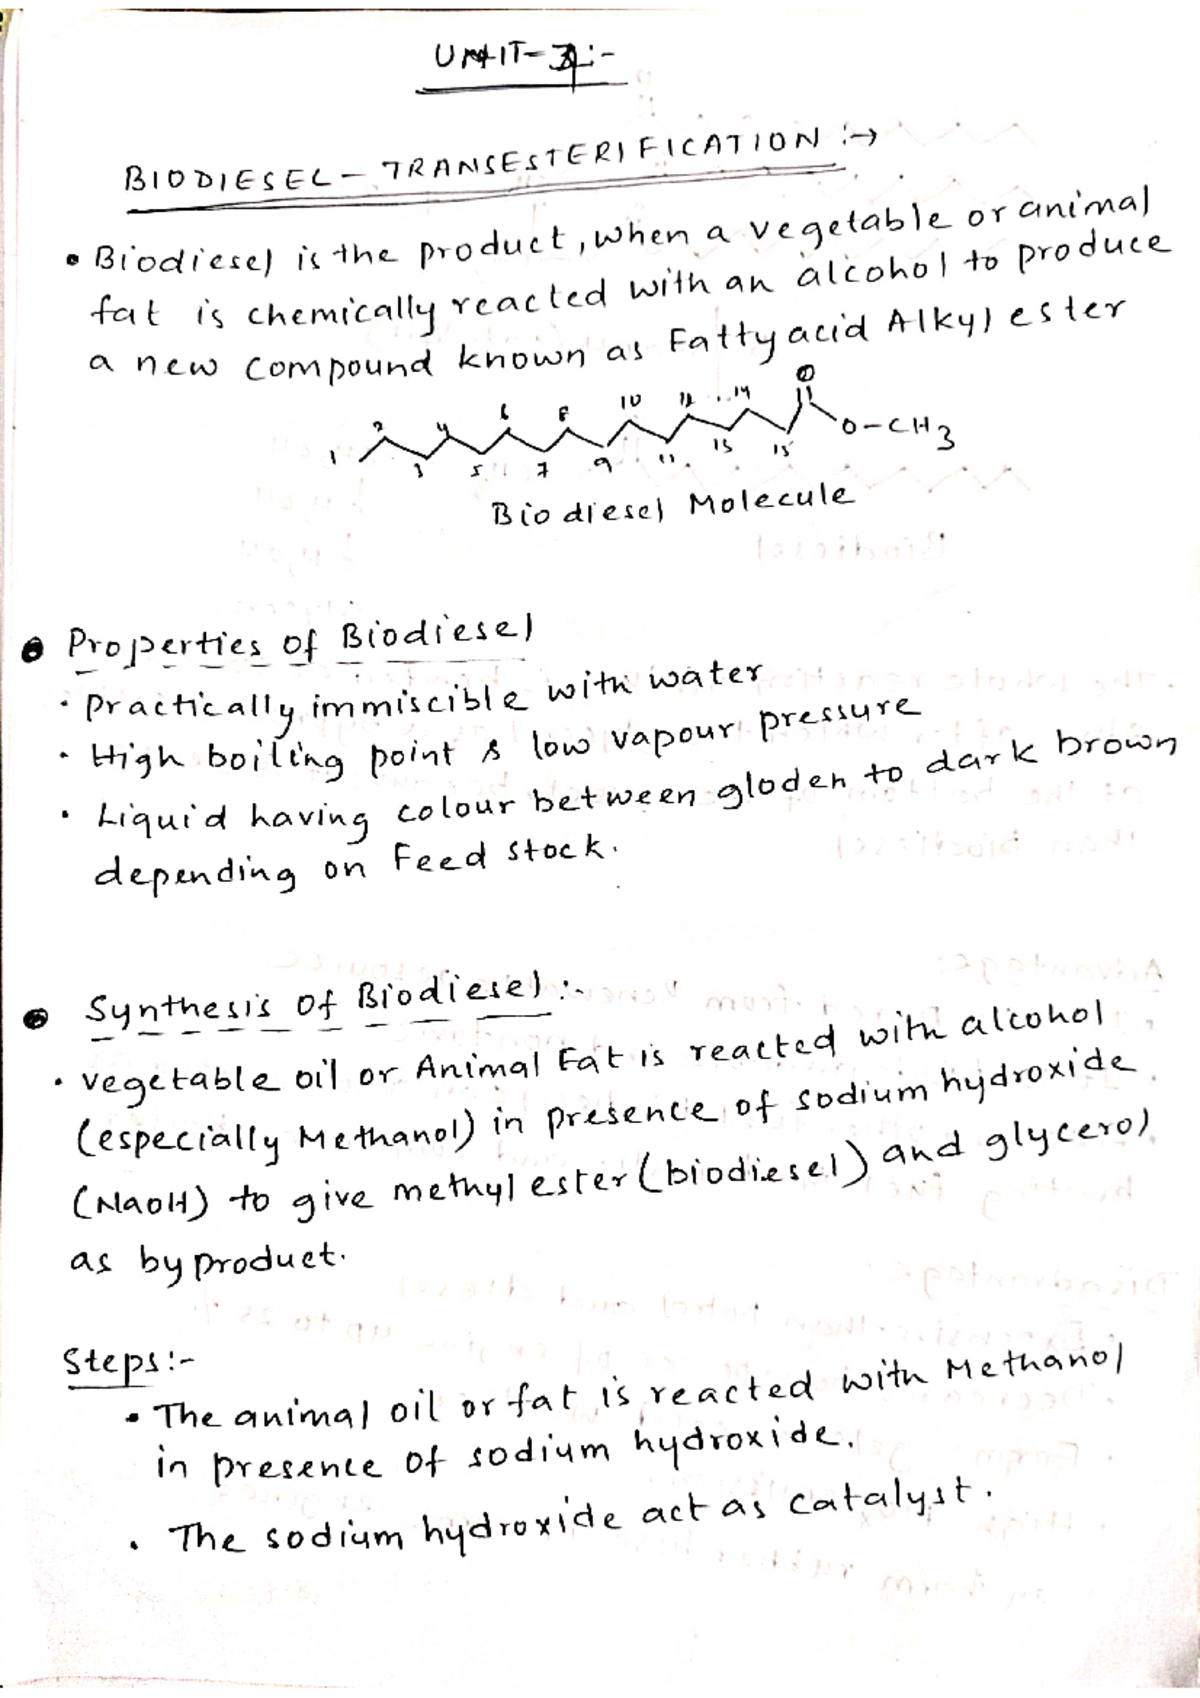 UNIT-3:-
BIODIESEL - TRANSESTERIFICATION :→
• Biodiesel is the product, when a vegetable or animal
fat is chemically reacted with an alcohol to produce
a new compound known as Fatty acid Alkyl ester
1 2 3 4 5 6 7 8 9 10 11 12 13 14 15 O O-CH3
Biodiesel Molecule
• Properties of Biodiesel
· Practically immiscible with water
· High boiling point & low vapour pressure
· Liquid having colour between gloden to dark brown
depending on Feed stock.
• Synthesis of Biodiesel :-
· vegetable oil or Animal Fat is reacted with alcohol
(especially Methanol) in presence of sodium hydroxide
(NaOH) to give methyl ester (biodiesel) and glycerol
as by product.
Steps:-
• The animal oil or fat is reacted with Methanol
in presence of sodium hydroxide.
• The sodium hydroxide act as catalyst.